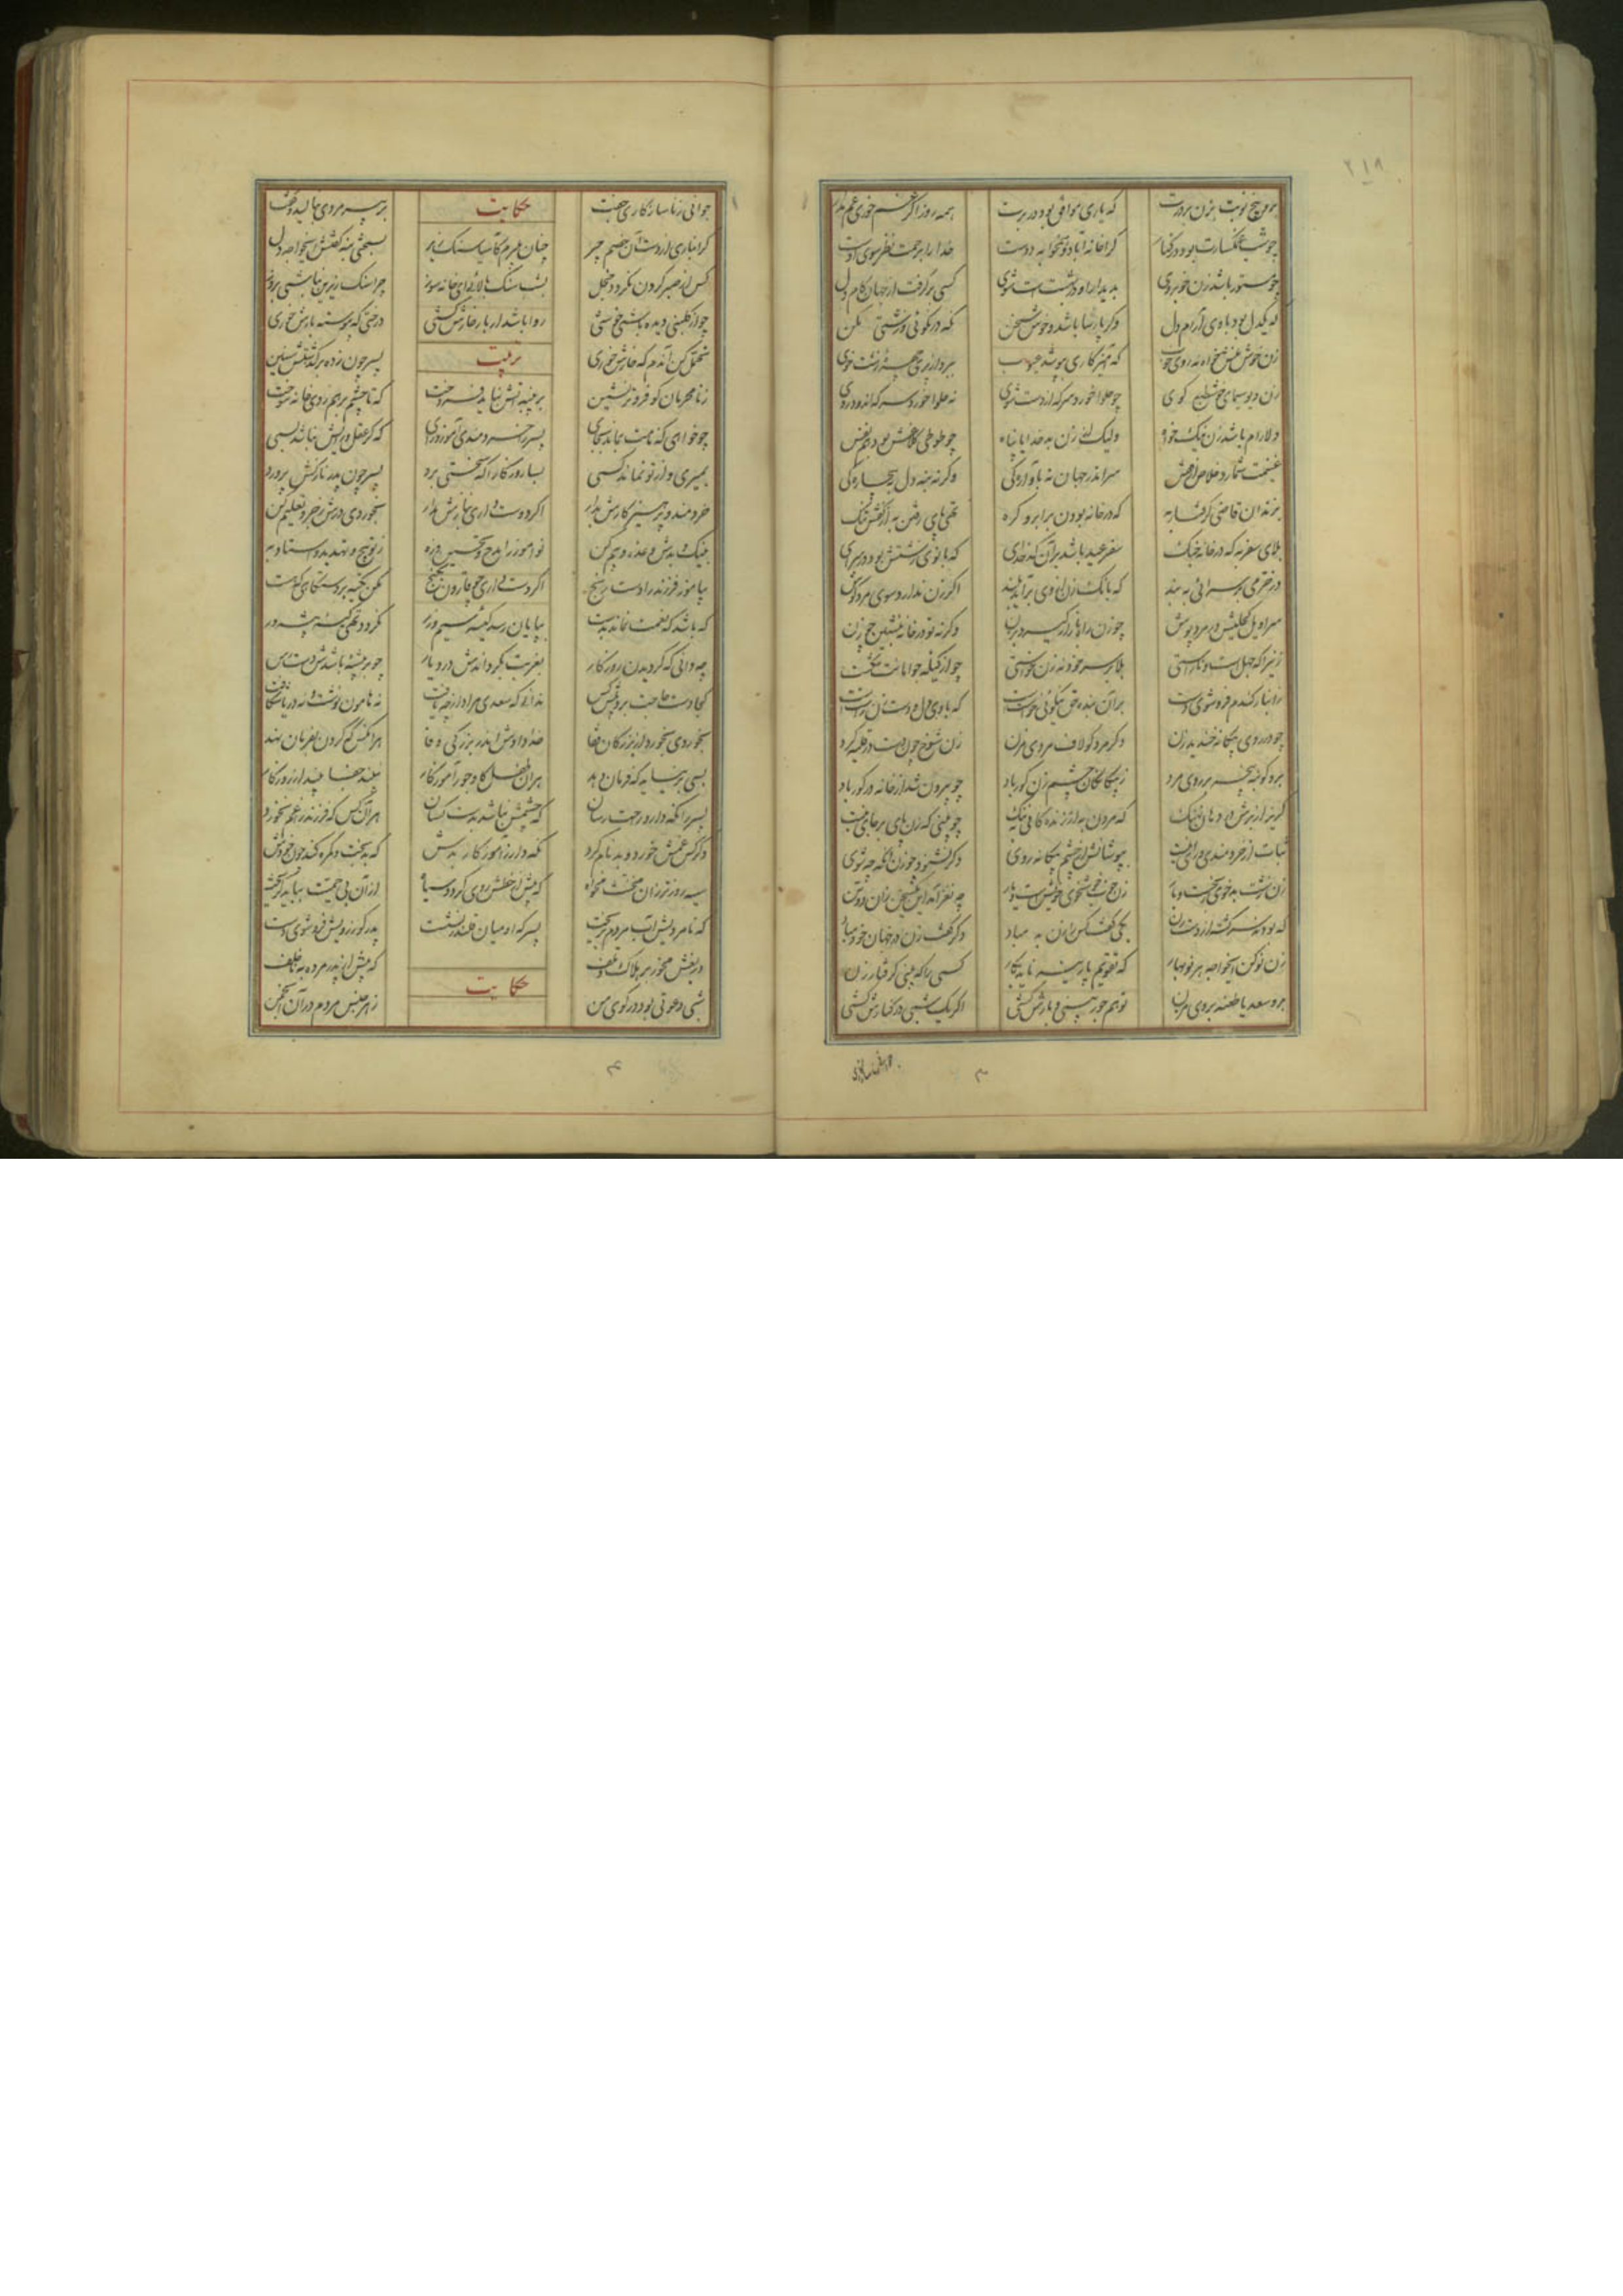 ۲۱۹
برو پنج نوبت بزن بر درت که یاری موافق بود در برت همه روز اگر غم خوری غم مدار
چو شب غمگسارت بود در کنار کرا خانه آباد و همخوابه دوست خدا را برحمت نظر سوی اوست
چو مستور باشد زن خوبروی بدیدار او در بهشت است شوی کسی برگرفت از جهان کام دل
که یکدل بود با وی آرام دل وگر پارسا باشد و خوش سخن نگه در نکوئی و زشتی مکن
زن خوش منش خواه نه روی خوب که آمیزگاری بپوشد عیوب ببرد از پریچهره زشت خوی
زن دیو سیمای خوش طبع گوی چو حلوا خورد سرکه از دست شوی نه حلوا خورد سرکه اندوده روی
دلارام باشد زن نیک خواه ولیک از زن بد خدایا پناه چو طوطی کلاغش بود هم نفس
غنیمت شمارد خلاص از قفس سر اندر جهان نه بآوارگی وگرنه بنه دل بیچارگی
بزندان قاضی گرفتار به که در خانه بودن بر ابرو گره تهی پای رفتن به از کفش تنگ
بلای سفر به که در خانه جنگ سفر عید باشد بر آن کدخدای که بانوی زشتش بود در سرای
در خرمی بر سرائی به بند که بانک زن از وی برآید بلند اگر زن ندارد سوی مرد گوش
سراویل کحلیش در مرد پوش چو زن راه بازار گیرد بزن وگرنه تو در خانه بنشین چو زن
زنیرا که جهل است و ناراستی بلا بر سر خود نه زن خواستی چو از کیله جو امانت شکست
از انبار گندم فرو شوی دست بر آن بنده حق نیکوئی خواست است که با وی دل و دست زن راست است
چو در روی بیگانه خندید زن دگر مرد گو لاف مردی مزن زن شوخ چون دست در قلیه کرد
برو گو بنه پنجه بر روی مرد ز بیگانگان چشم زن کور باد چو بیرون شد از خانه در گور باد
گریز از برش در دهان نهنگ که مردن به از زندگانی بننگ چو بینی که زن پای بر جای نیست
ثبات از خردمندی و رای نیست بپوشانش از چشم بیگانه روی وگر نشنود چو زن آنگه چه شوی
زن زشت بدخوی چه نغز آمد این یک سخن زان دو تن
که بودند سرگشته از دست زن یکی گفت کس را زن بد مباد دگر گفت زن در جهان خود مباد
زن نو کن ایخواجه هر نوبهار که تقویم پارینه ناید بکار کسی را که بینی گرفتار زن
مرو سعدیا طعنه بر وی مزن تو هم جور بینی و بارش کشی اگر یک شبی در کنارش کشی
جوانی ز ناسازگاری جفت حکایت بر پیر مردی بنالید و گفت
گرانباری از دست آن خصم چیر چنان میبرم کاسیا سنگ زیر بسختی بنه گفتش ایخواجه دل
کس از صبر کردن نگردد خجل بشب سنگ بالائی ای خانه سوز چرا سنگ زیرین نباشی بروز
چو از گلبنی دیده باشی خوشی روا باشد ار بار خارش کشی درختی که پیوسته بارش خوری
تحمل کن آندم که خارش خوری تربیت پسر چون ز ده برگذشتش سنین
ز نامحرمان گو فروتر نشین بر پنبه آتش نباید فروخت که تا چشم برهم زدی خانه سوخت
چو خواهی که نامت بماند بجای پسر را خردمندی آموز و رای که گر عقل و رایش نباشد بسی
بمیری و از تو نماند کسی بسا روزگارا که سختی برد پسر چون پدر نازکش پرورد
خردمند و پرهیزگارش برآر اگر دوست داری بنازش مدار بخوردی درش زجر و تعلیم کن
بنیک و بدش وعده و بیم کن نوآموز را مدح و تحسین و زه ز توبیخ و تهدید استاد به
بیاموز فرزند را دست رنج اگر دست داری چو قارون بگنج مکن تکیه بر دستگاهی که هست
که باشد که نعمت نماند بدست بپایان رسد کیسه سیم و زر نگردد تهی کیسه پیشه ور
چه دانی که گردیدن روزگار بغربت بگرداندش در دیار چو بر پیشه باشدش دست رس
کجا دست حاجت برد پیش کس ندانی که سعدی مراد از چه یافت نه هامون نوشت و نه دریا شکافت
بخوردی بخورد از بزرگان قفا خدا دادش اندر بزرگی صفا هر آنکس که گردن بفرمان نهد
بسی برنیاید که فرمان دهد هر آن طفل کاو جور آموزگار نبیند جفا بیند از روزگار
پسر را نکو دار و راحت رسان که چشمش نباشد بدست کسان هر آن کس که فرزند را غم نخورد
دگر کس غمش خورد و بدنام کرد نگه دار از آمیزگار بدش که بدبخت و گمره کند چون خودش
سیه روزتر زان مخنث مخواه که پیش از خطش روی گردد سیاه از آن بی حمیت بباید گریخت
که نامردیش آب مردم بریخت پسر کاو میان قلندر نشست پدر گو فرو شوی دست
دریغش مخور بر هلاک و تلف که پیش از پدر مرده به ناخلف
حکایت
شبی دعوتی بود در کوی من ز هر جنس مردم در آن انجمن